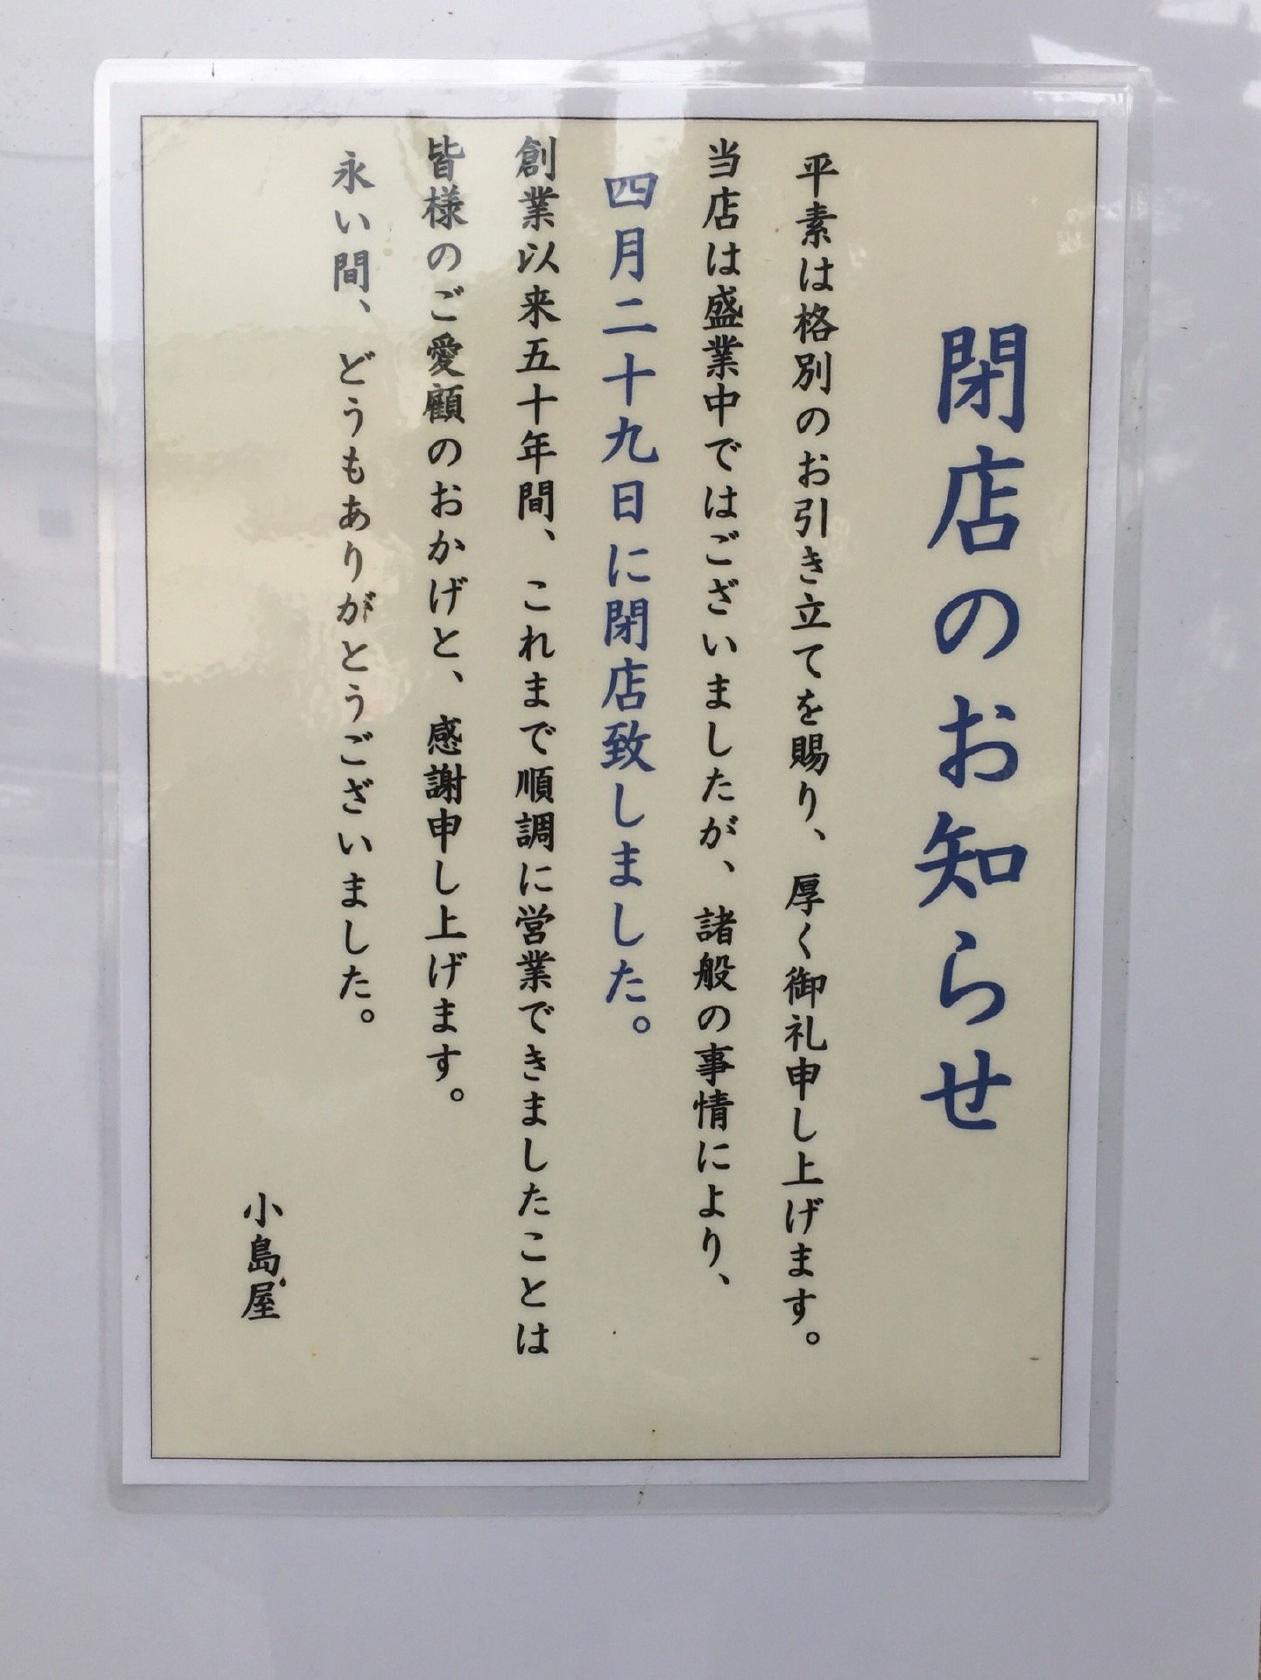 閉店のお知らせ
平素は格別のお引き立てを賜り、厚く御礼申し上げます。
当店は盛業中ではございましたが、諸般の事情により、
四月二十九日に閉店致しました。
創業以来五十年間、これまで順調に営業できましたことは
皆様のご愛顧のおかげと、感謝申し上げます。
永い間、どうもありがとうございました。
小島屋